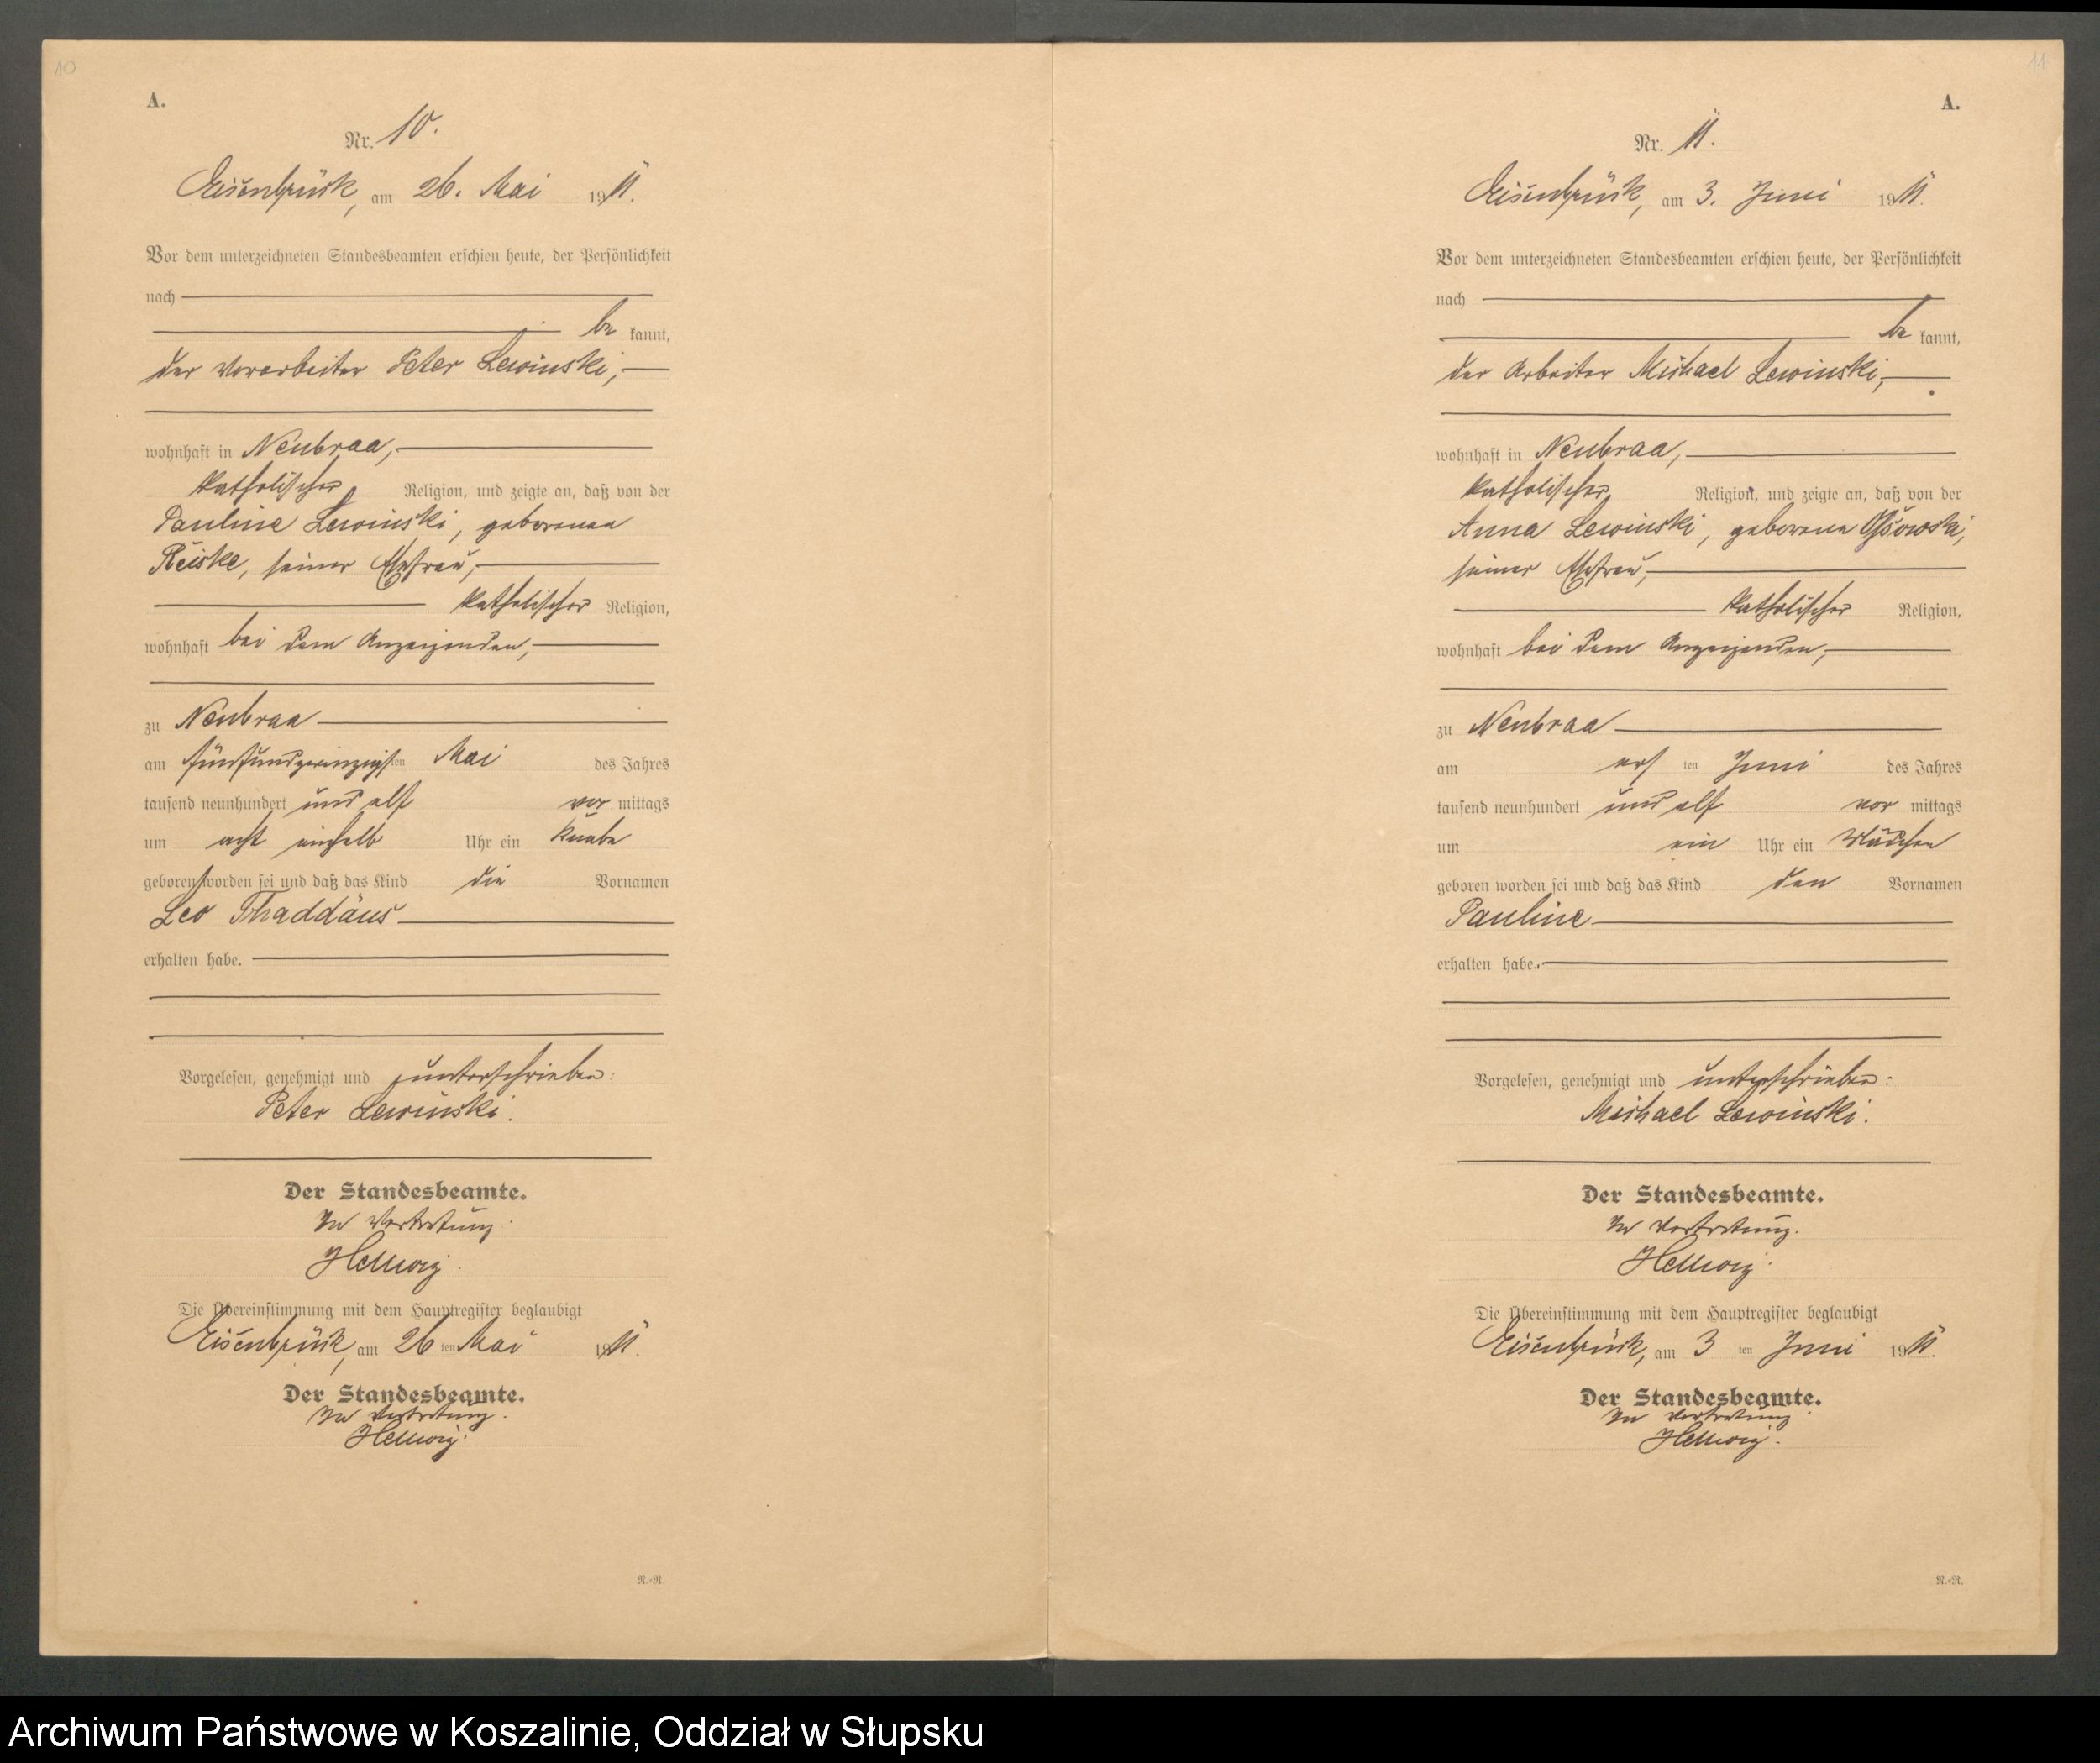 10
A.
Nr. 10.
Eisenbrück, am 26. Mai 1911.
Vor dem unterzeichneten Standesbeamten erschien heute, der Persönlichkeit
nach
be kannt,
der Vorarbeiter Peter Lewinski,
wohnhaft in Neubraa,
katholischer Religion, und zeigte an, daß von der
Pauline Lewinski, geborenen
Reiske, seiner Ehefrau,
katholischer Religion,
wohnhaft bei dem Anzeigenden,
zu Neubraa
am fünfundzwanzigsten Mai des Jahres
tausend neunhundert und elf vor mittags
um acht einhalb Uhr ein Knabe
geboren worden sei und daß das Kind die Vornamen
Leo Thaddäus
erhalten habe.
Vorgelesen, genehmigt und unterschrieben:
Peter Lewinski.
Der Standesbeamte.
In Vertretung.
Hellwig.
Die Übereinstimmung mit dem Hauptregister beglaubigt
Eisenbrück, am 26 ten Mai 1911.
Der Standesbeamte.
In Vertretung.
Hellwig.
R.-R.
11
A.
Nr. 11.
Eisenbrück, am 3. Juni 1911.
Vor dem unterzeichneten Standesbeamten erschien heute, der Persönlichkeit
nach
be kannt,
der Arbeiter Michael Lewinski,
wohnhaft in Neubraa,
katholischer Religion, und zeigte an, daß von der
Anna Lewinski, geborenen Ossowski,
seiner Ehefrau,
katholischer Religion,
wohnhaft bei dem Anzeigenden,
zu Neubraa
am ers ten Juni des Jahres
tausend neunhundert und elf vor mittags
um ein Uhr ein Mädchen
geboren worden sei und daß das Kind den Vornamen
Pauline
erhalten habe.
Vorgelesen, genehmigt und unterschrieben:
Michael Lewinski.
Der Standesbeamte.
In Vertretung.
Hellwig.
Die Übereinstimmung mit dem Hauptregister beglaubigt
Eisenbrück, am 3 ten Juni 1911.
Der Standesbeamte.
In Vertretung.
Hellwig.
R.-R.
Archiwum Państwowe w Koszalinie, Oddział w Słupsku